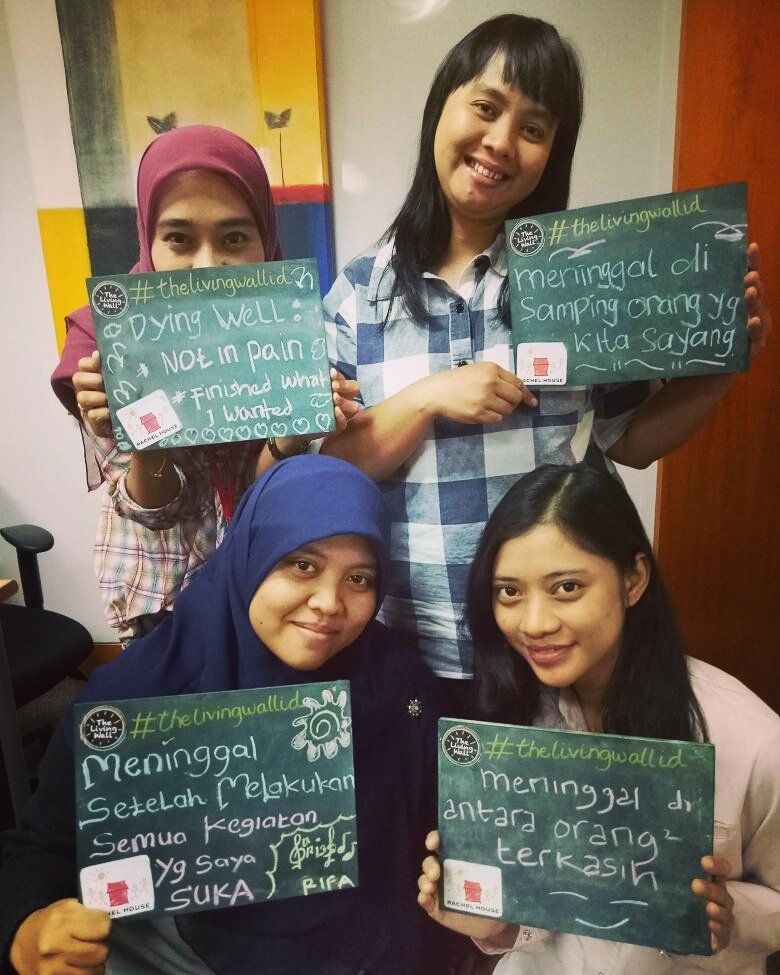 The Living Wall
#thelivingwallid
Dying Well:
* Not in pain
# Finished what
I wanted
RACHEL HOUSE
The Living Wall
#thelivingwallid
meninggal di
samping orang yg
kita sayang
RACHEL HOUSE
The Living Wall
#thelivingwallid
Meninggal
Setelah Melakukan
Semua Kegiatan
Yg Saya
SUKA
RIFA
RACHEL HOUSE
The Living Wall
#thelivingwallid
meninggal di
antara orang²
terkasih
RACHEL HOUSE